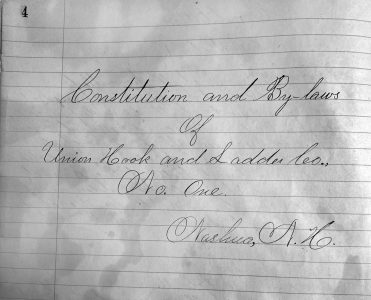 4
Constitution and By-laws
Of
Union Hook and Ladder Co.,
No. One.
Nashua, N. H.